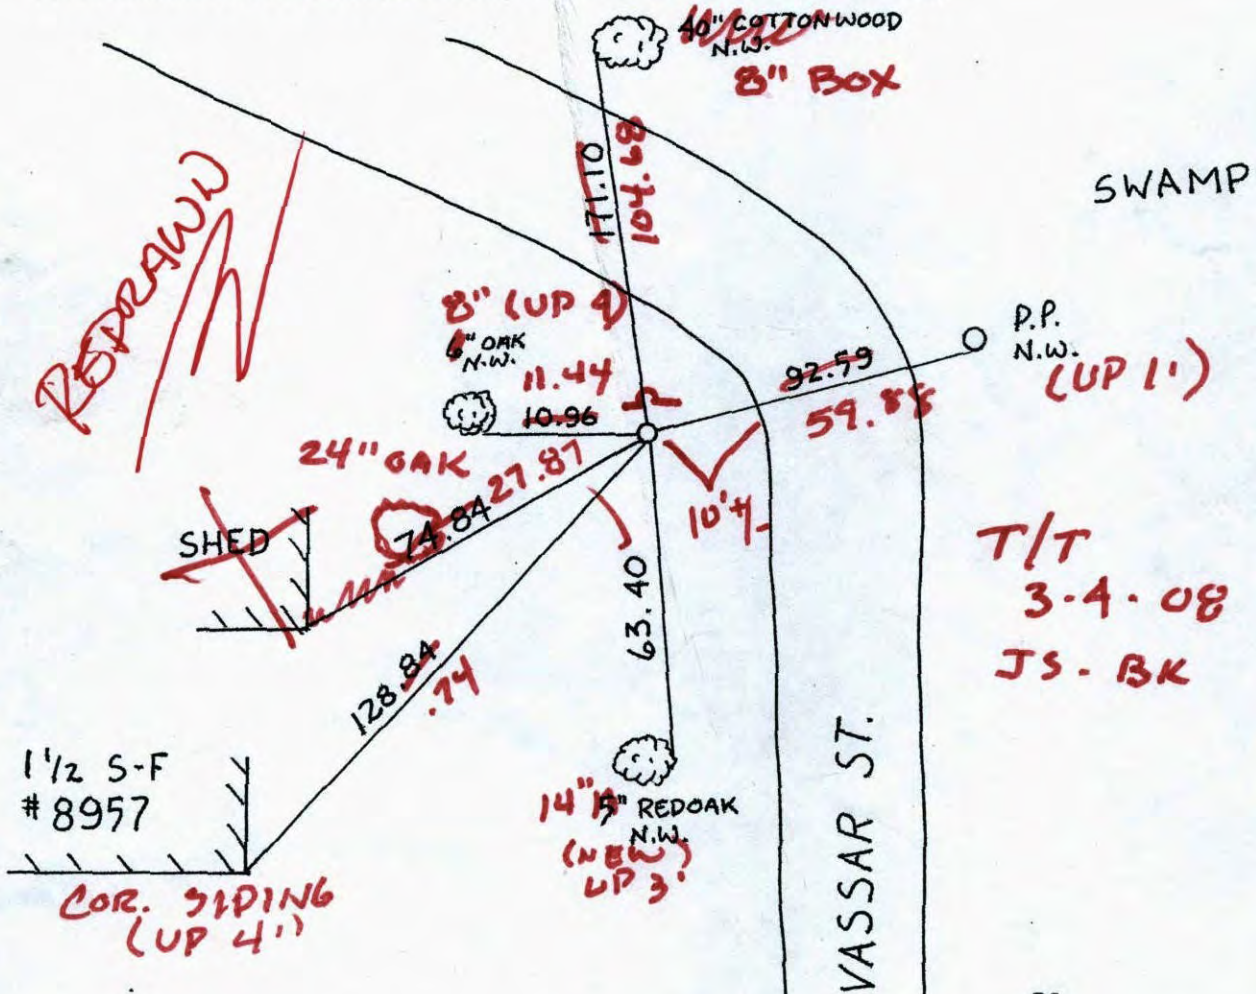 40" COTTONWOOD
N.W.
8" BOX
SWAMP
REDRAWN
171.10
104.68
8" (UP 4)
6" OAK
N.W.
11.44
10.96
92.59
59.88
P.P.
N.W.
(UP 1')
24" OAK
27.87
74.84
SHED
10'
63.40
T/T
3-4-08
JS-BK
128.84
.74
1 1/2 S-F
#8957
14"
5" REDOAK
N.W.
(NEW)
UP 3'
COR. SIDING
(UP 4')
VASSAR ST.